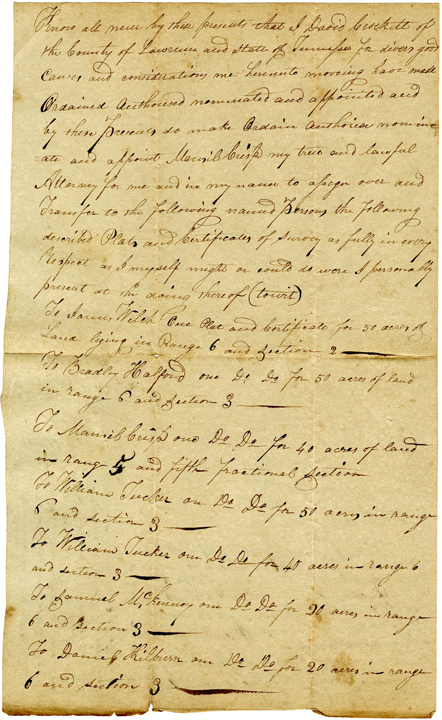 Know all men by these presents that I David Crockett of
the County of Lawrence and State of Tennessee for divers good
causes and considerations me hereunto mooving have made
Ordained Authorised nominated and appointed and
by these Presents do make Ordain Authorise nomin
=ate and appoint Mansil Crisp my true and lawful
Attorney for me and in my name to assign over and
Transfer to the following named Persons the following
described Plats and Certificates of Survey as fully in every
Respect as I myself might or could do were I personally
present at the doing thereof (towit)
To James Welch One Plat and Certificate for 50 acres of
Land lying in Range 6 and Section 2
To Bradley Halford one Do Do for 50 acres of land
in range 6 and Section 3
To Mansil Crisp one Do Do for 40 acres of land
in range 5 and fifth fractional Section
To William Tucker one Do Do for 50 acres in range
6 and section 3
To William Tucker one Do Do for 40 acres in range 6
and section 3
To Samuel McKenney one Do Do for 20 acres in range
6 and Section 3
To Daniel Kilburn one Do Do for 20 acres in range
6 and section 3